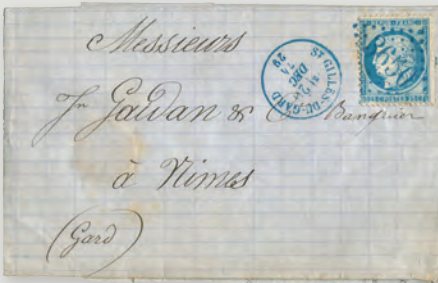 Messieurs
Jn Gaidan & C Banquier
à Nimes
(Gard)
ST GILLES-DU-GARD
29
DEC
74